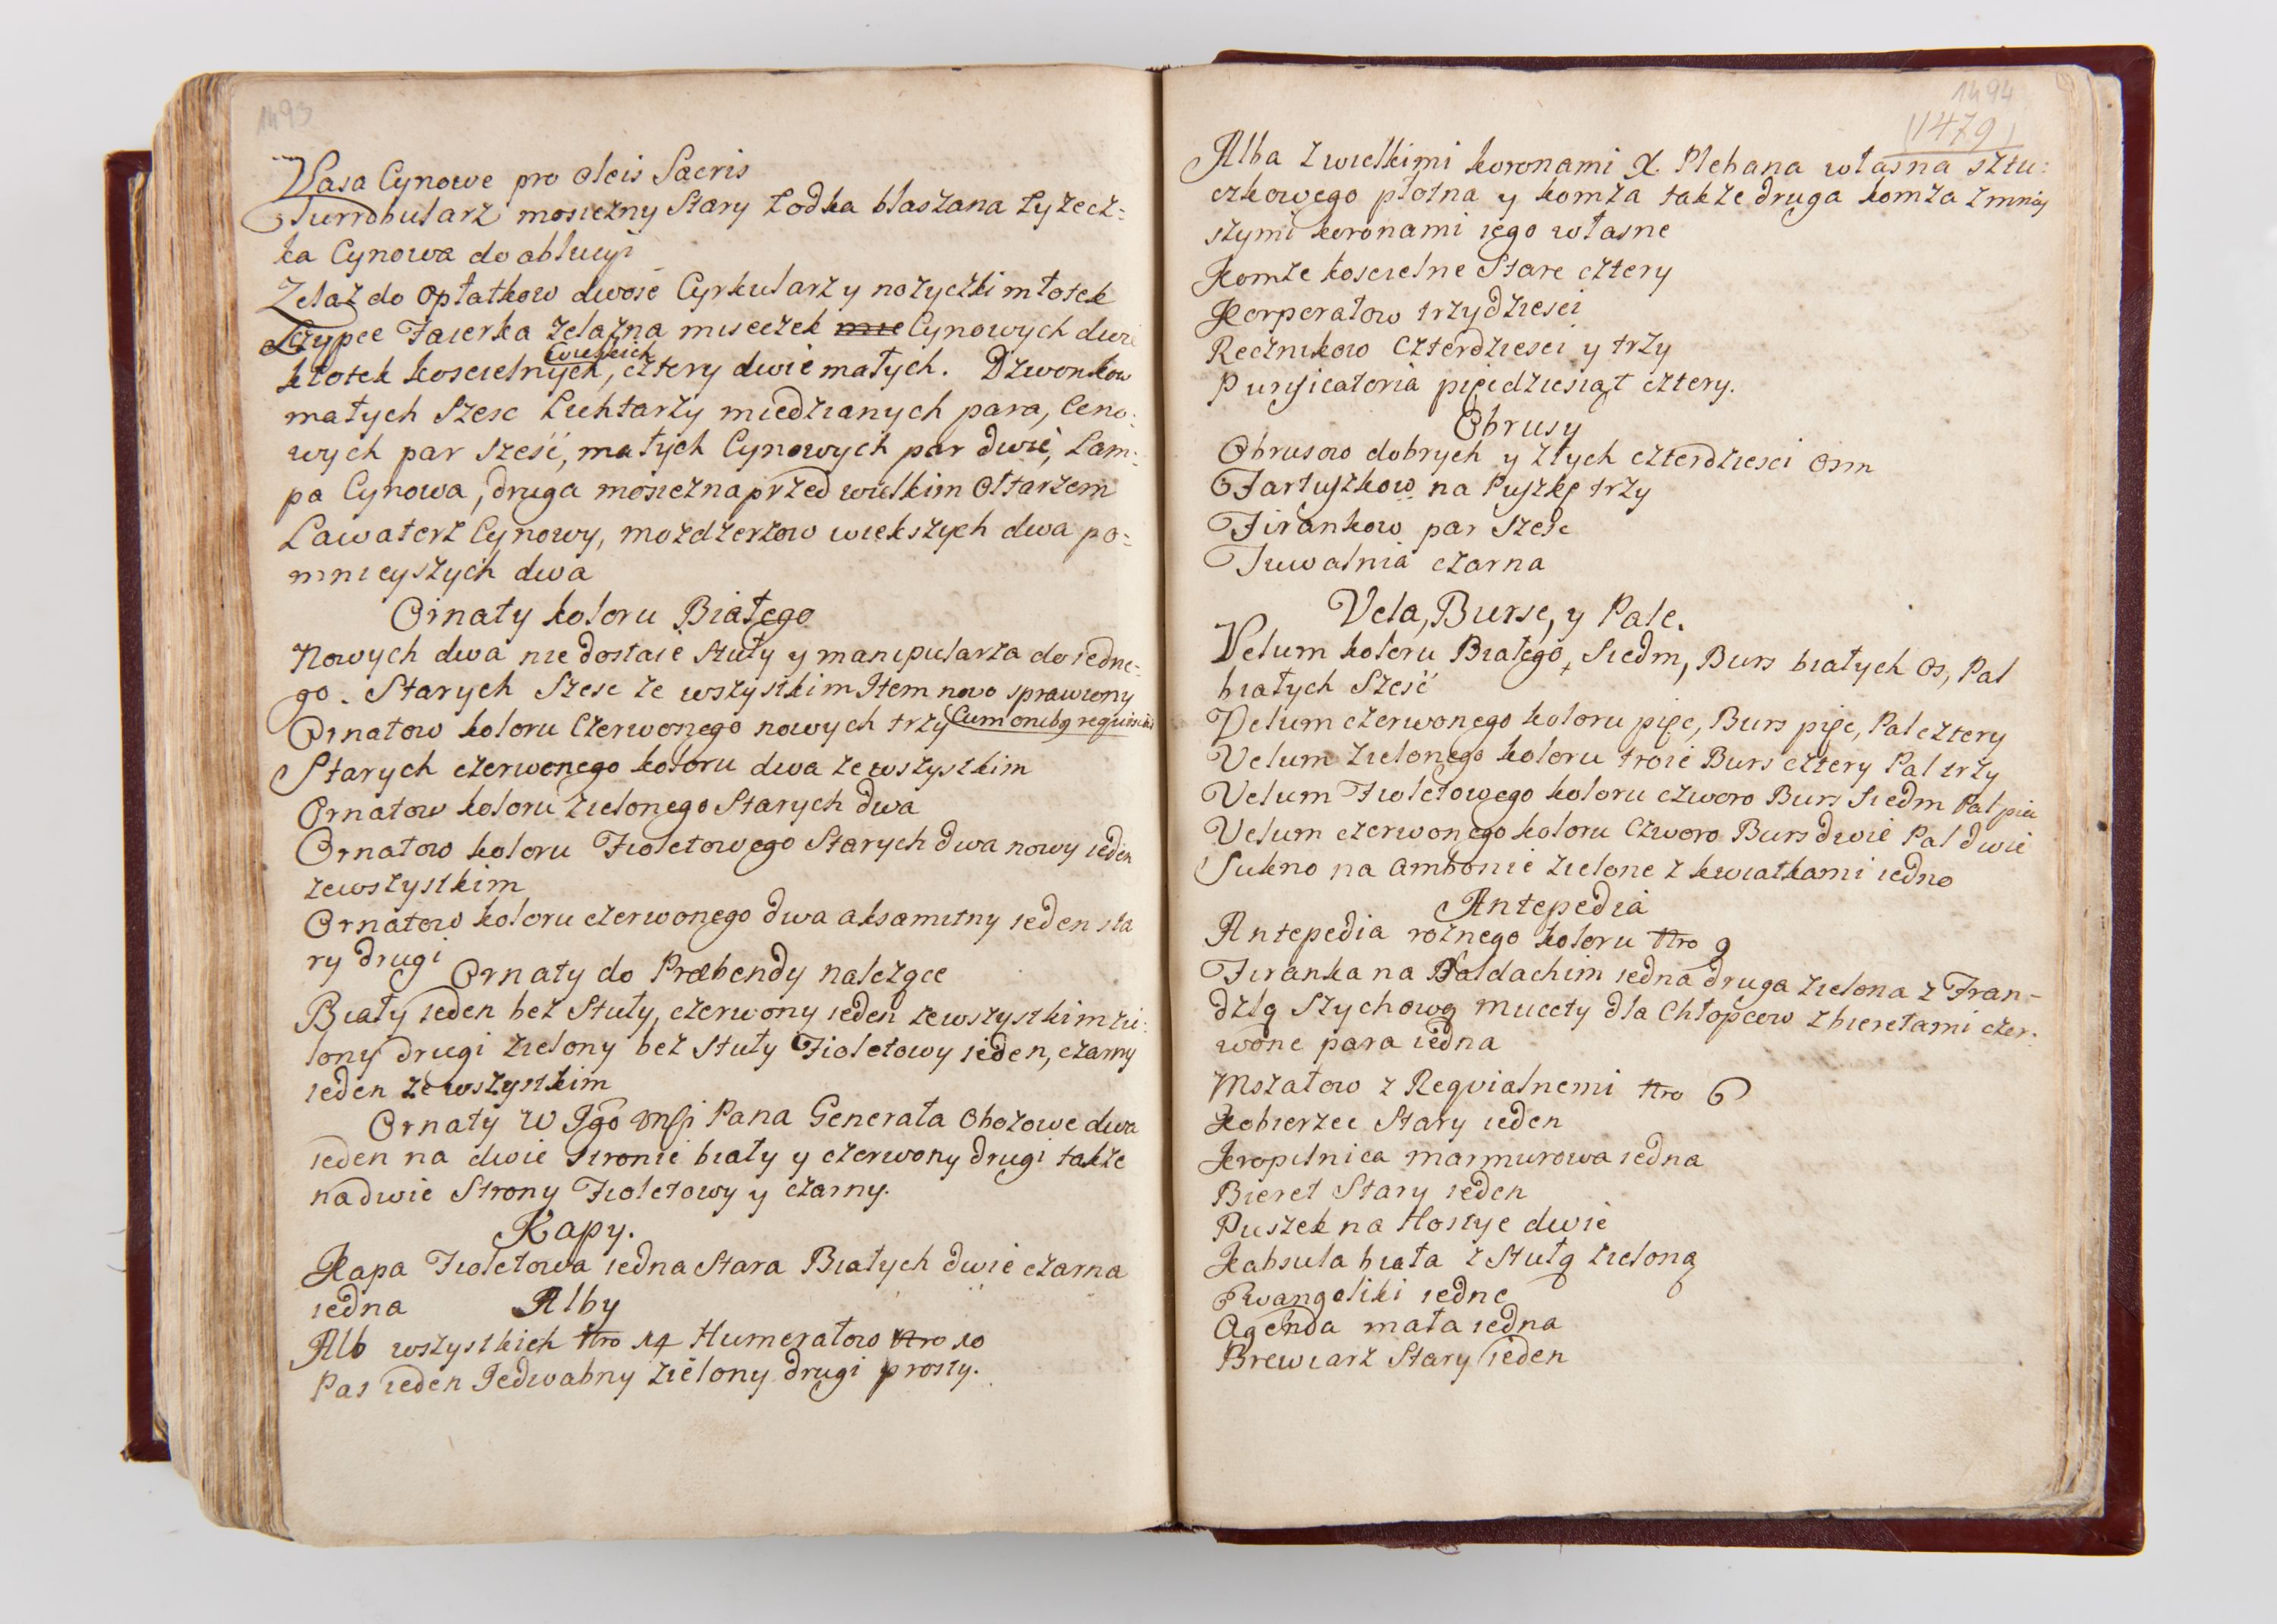 1493
Vasa Cynowe pro oleis Sacris
Turrobularz mosiezny Stary Łodka blaszana Łyzecz=
ka Cynowa do ablucyi
Zelaz do Opłatkow dwoie Cyrkularz y nozyczki młotek
Szczypce Faierka zelazna miseczek mie Cynowych dwie
wielkich
kłotek koscielnych, cztery dwie małych. Dzwonkow
małych Szesc Lichtarzy miedzianych para, Ceno:
wych par sześć, małych Cynowych par dwie, Lam:
pa Cynowa, druga mosiezna przed wielkim Ołtarzem
Lawaterz Cynowy, mozdzerzow wiekszych dwa po=
mnieyszych dwa
Ornaty koloru Białego
Nowych dwa nie dostaie Stuły y manipularza do iedne-
go. Starych Szesc ze wszystkim Item nowo sprawiony
Ornatow koloru Czerwonego nowych trzy Cum omnibq requisitis
Starych czerwonego koloru dwa ze wszystkim
Ornatow koloru Zielonego Starych dwa
Ornatow koloru Fioletowego Starych dwa nowy ieden
zewszystkim
Ornatow koloru czerwonego dwa aksamitny ieden sta
ry drugi
Ornaty do Præbendy nalezące
Biały ieden bez Stuły, czerwony ieden zewszystkim zie:
lony drugi zielony bez Stuły Fioletowy ieden, czarny
ieden ze wszystkim
Ornaty W Jgo Pana Generała Obozowe dwa
ieden na dwie stronie biały y czerwony drugi także
na dwie Strony Fioletowy y czarny.
Kapy.
Kapa Fioletowa iedna Stara Białych dwie czarna
iedna
Alby
Alb wszystkich Nro 14 Humerałow Nro 10
Pas ieden Jedwabny zielony drugi prosty.
1494
(1479)
Alba z wielkimi koronami X. Plebana własna sztu:
czkowego płotna y komza także druga komza z mniey
szymi koronami iego własne
Komze koscielne Stare cztery
Korporałow trzydziesci
Recznikow Czterdziesci y trzy
Purificatoria pięcdziesiąt cztery.
Obrusy
Obrusow dobrych y złych czterdziesci osm
Fartuszkow na Puszkę trzy
Firankow par Szesc
Tuwalnia czarna
Vela, Burse, y Pale.
Velum koloru Białego, Siedm, Burs białych os, Pal
białych Sześć
Velum czerwonego koloru pięc, Burs pięc, Pal cztery
Velum Zielonego koloru troie Burs cztery Pal trzy
Velum Fioletowego koloru czworo Burs Siedm Pal pie
Velum czerwonego koloru Czworo Burs dwie Pal dwie
Sukno na ambonie zielone z kwiatkami iedno
Antepedia
Antepedia rożnego koloru Nro 9
Firanka na Baldachim iedna druga zielona z Fran-
dzlą Szychową mucety dla Chłopcow z bieretami czer:
wone para iedna
Mszałow z Requialnemi Nro 6
Kobierzec Stary ieden
Kropilnica marmurowa iedna
Bieret Stary ieden
Puszek na Hostye dwie
Kabsula biała z Stułą zieloną
Ewangeliki iedne
Agenda mała iedna
Brewiarz Stary ieden